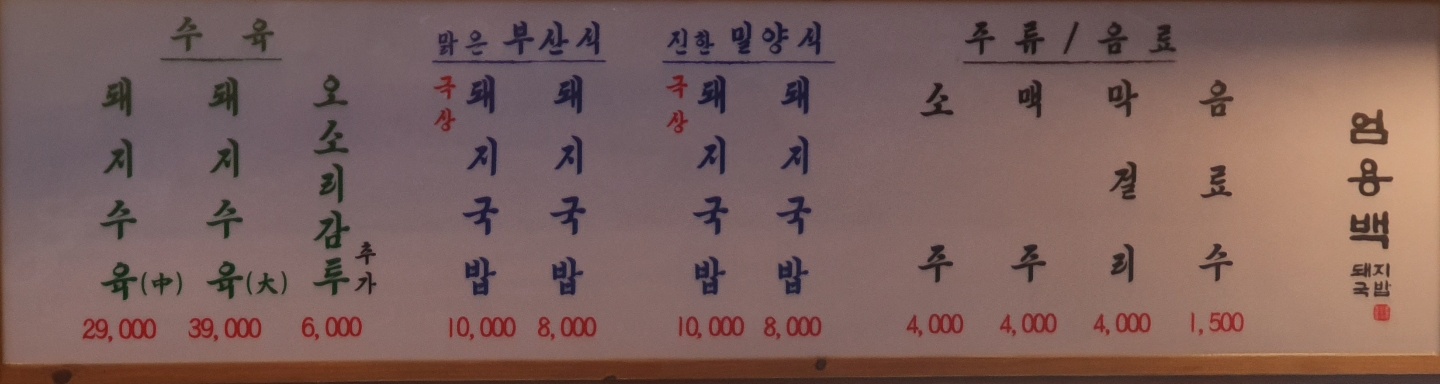 수육
돼지수육(中) 29,000
돼지수육(大) 39,000
오소리감투 추가 6,000
맑은 부산식
극상 돼지국밥 10,000
돼지국밥 8,000
진한 밀양식
극상 돼지국밥 10,000
돼지국밥 8,000
주류/음료
소주 4,000
맥주 4,000
막걸리 4,000
음료수 1,500
엄용백
돼지
국밥